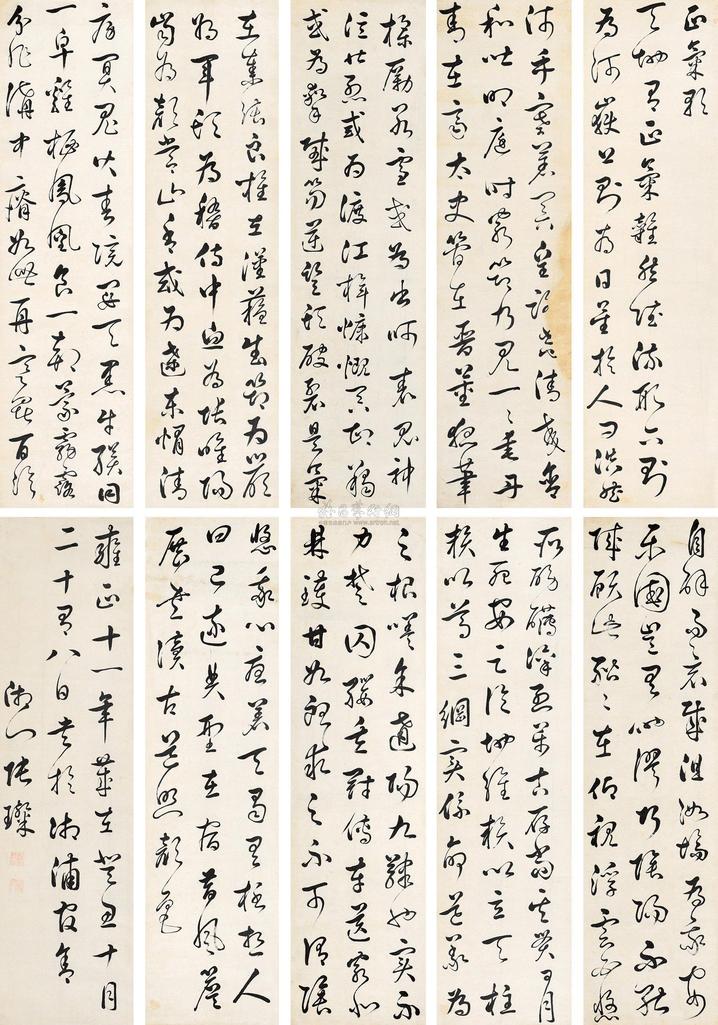 正氣歌
天地有正氣雜然賦流形下則
為河嶽上則為日星於人曰浩然
沛乎塞蒼冥皇路當清夷含
和吐明庭時窮節乃見一一垂丹
青在齊太史簡在晉董狐筆
在秦張良椎在漢蘇武節為嚴
將軍頭為嵇侍中血為張睢陽
齒為顏常山舌或為遼東帽清
操厲冰雪或為出師表鬼神
泣壯烈或為渡江楫慷慨吞胡羯
或為擊賊笏逆豎頭破裂是氣
所磅礴凜烈萬古存當其貫日月
生死安足論地維賴以立天柱
賴以尊三綱實係命道義為
之根嗟余遘陽九隸也實不
力楚囚纓其冠傳車送窮北
鼎鑊甘如飴求之不可得陰
房闃鬼火春院閟天黑牛驥同
一皁雞棲鳳凰食一朝蒙霧露
分作溝中瘠如此再寒暑百沴
自辟易哀哉沮洳場為我安
樂國豈有他繆巧陰陽不能
賊顧此耿耿在仰視浮雲白悠
悠我心憂蒼天曷有極哲人
日已遠典型在宿昔風簷
展書讀古道照顏色
雍正十一年歲在癸丑十月
二十有八日書於湘浦官舍
湘門張璨